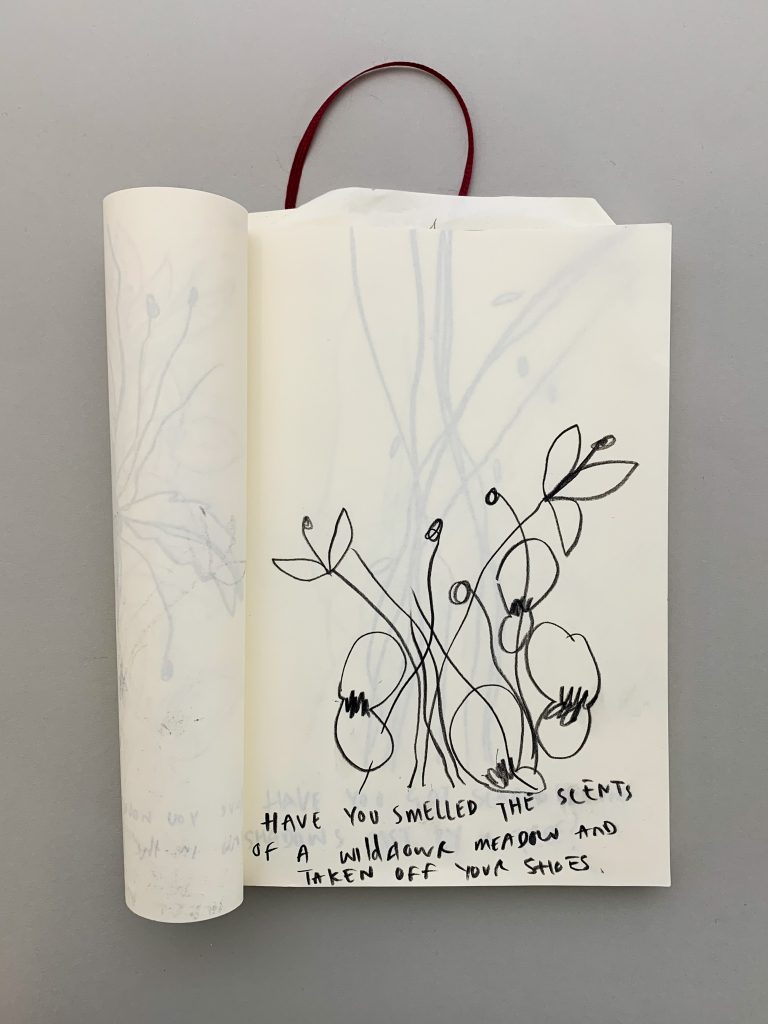 HAVE YOU SMELLED THE SCENTS
OF A WILDFLOWR MEADOW AND
TAKEN OFF YOUR SHOES.